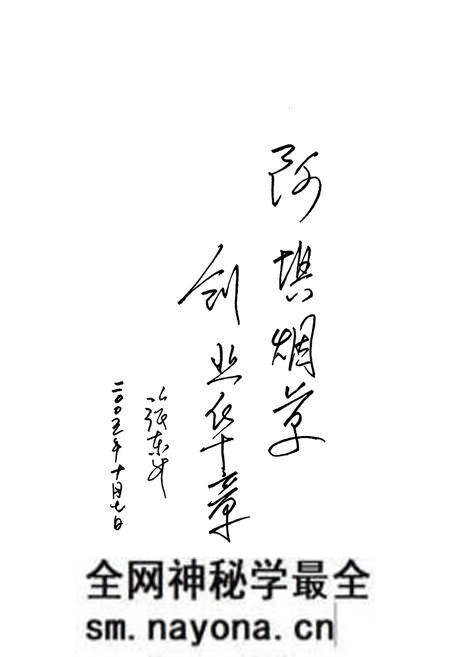 阿埧烟草
创业华章
张东升
二〇〇五年十月七日
全网神秘学最全
sm.nayona.cn